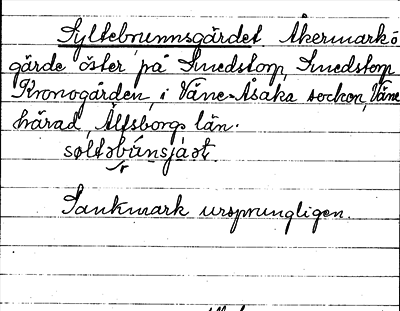 Syltebrunnsgärdet Åkermark o
gärde öster på Smedstorp, Smedstorp
Kronogården, i Väne-Åsaka socken, Väne
härad, Älfsborgs län.
sơltơbúnsjäơt.
Sankmark ursprungligen.